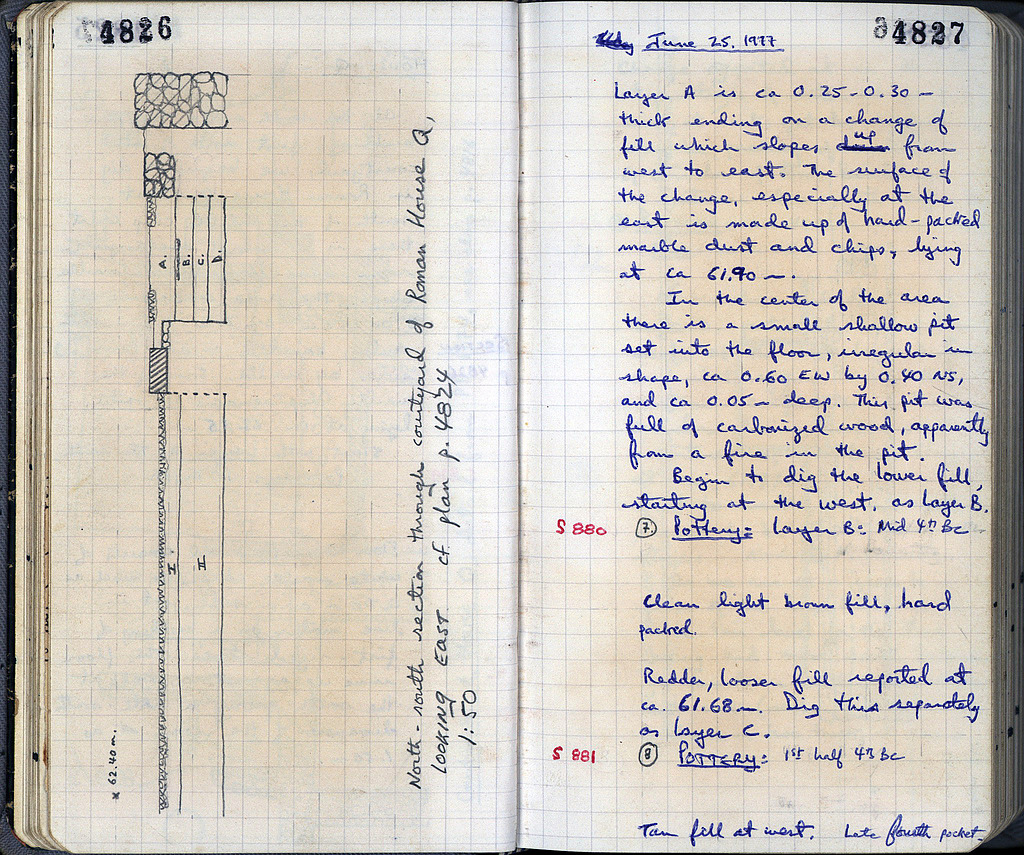 4826
A.
B.
C.
D.
I
II
x 62.40 m.
North-south section through courtyard of Roman House Q,
LOOKING EAST cf plan p. 4824
1:50
4827
June 25, 1977
Layer A is ca 0.25-0.30 m
thick ending on a change of
fill which slopes up from
west to east. The surface of
the change, especially at the
east is made up of hard-packed
marble dust and chips, lying
at ca 61.90 m.
In the center of the area
there is a small shallow pit
set into the floor, irregular in
shape, ca 0.60 EW by 0.40 NS,
and ca 0.05 m deep. This pit was
full of carbonized wood, apparently
from a fire in the pit.
Begin to dig the lower fill,
starting at the west, as Layer B.
S 880 (7) Pottery: Layer B: Mid 4th BC
Clean light brown fill, hard
packed.
Redder, looser fill reported at
ca. 61.68 m. Dig this separately
as layer C.
S 881 (8) POTTERY: 1st half 4th BC
Tan fill at west. Late fourth pocket